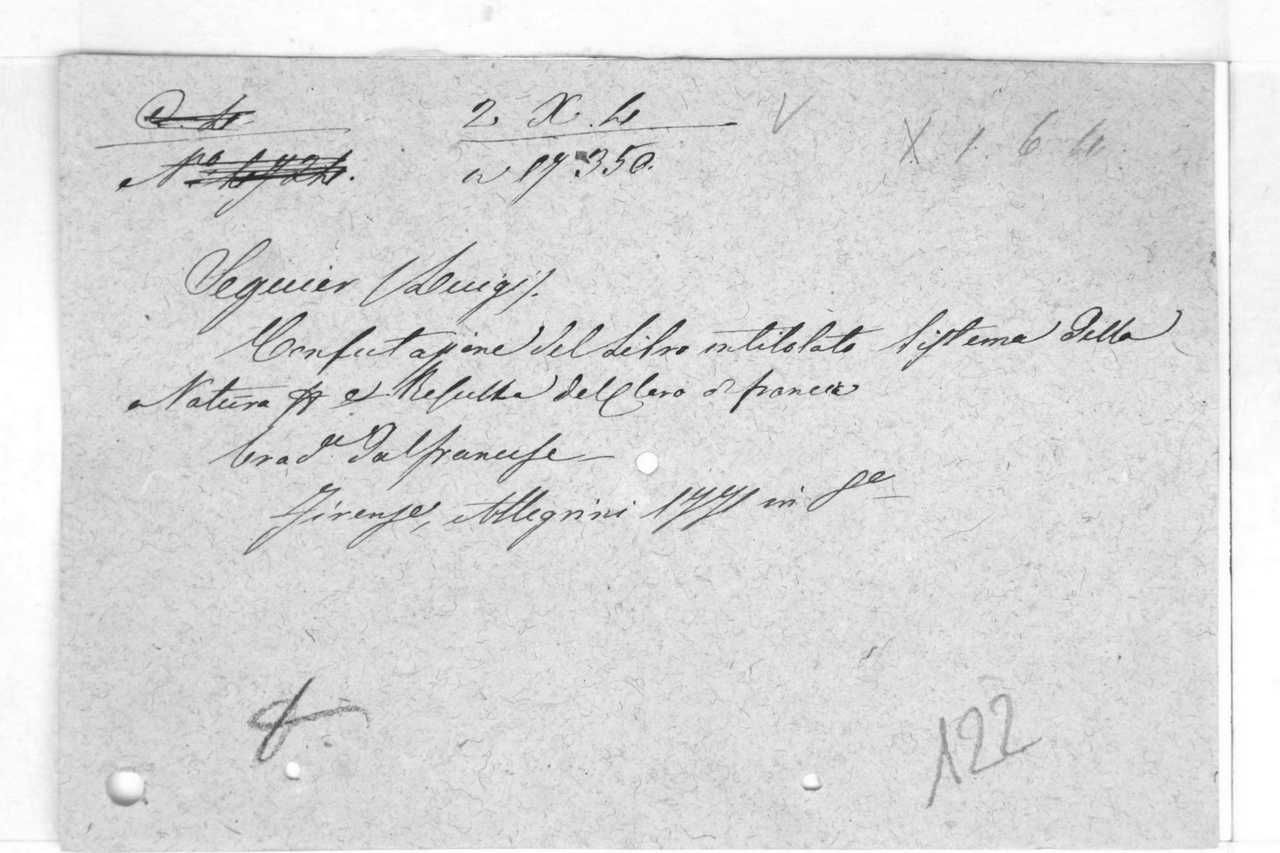 2. X. 4
X 1. 6 4.
n 17.350.
Seguier (Luigi).
Confutazione del Libro intitolato Sistema della
Natura e Resulta del Clero di francia
trad.e dal francese
Firenze, Allegrini 1771 in 8º
122